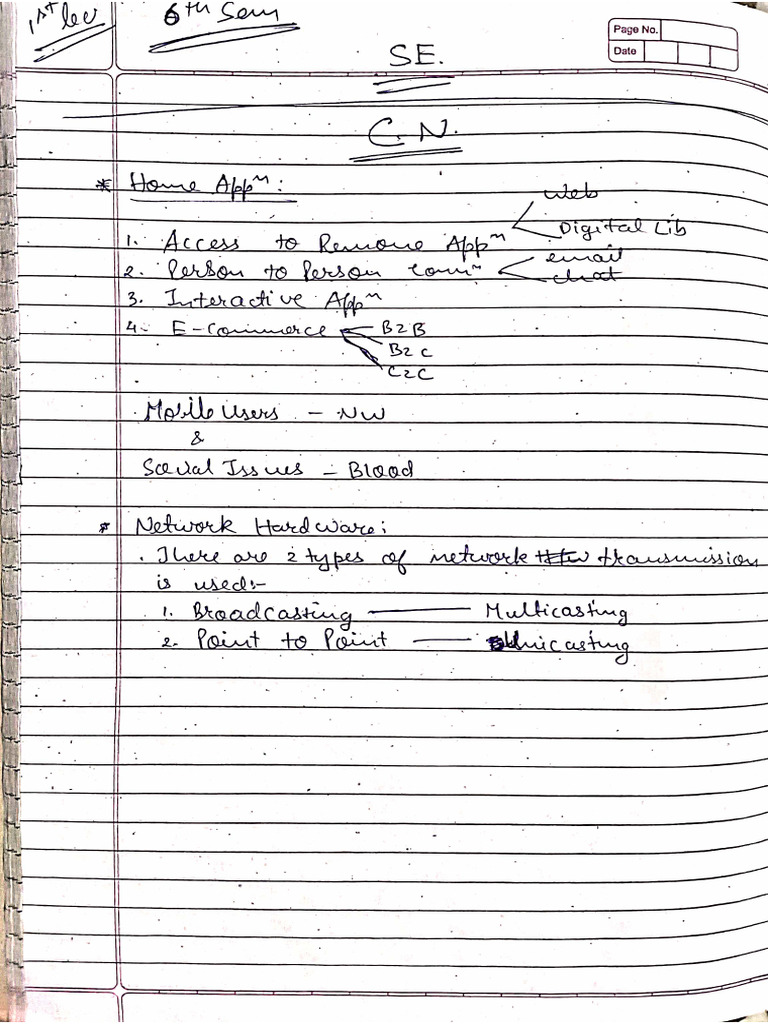 1st lec
6th Sem
Page No.
Date
SE.
C.N.
* Home Appn:
Web
1. Access to Remove Appn
Digital Lib
2. Person to Person Comn
email
chat
3. Interactive Appn
4. E-commerce
B2B
B2C
C2C
Mobile Users - NW
&
Social Issues - Blood
* Network Hardware:
. There are 2 types of network transmission
is used:-
1. Broadcasting — Multicasting
2. Point to Point — Unicasting